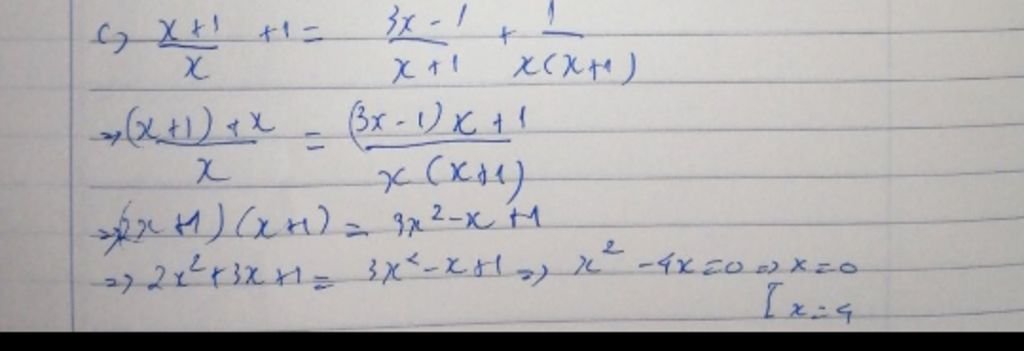 c) (x+1)/x + 1 = (3x - 1)/(x + 1) + 1/(x(x+1))
=> ((x+1) + x)/x = ((3x - 1)x + 1)/(x(x+1))
=> (2x + 1)(x+1) = 3x² - x + 1
=> 2x² + 3x + 1 = 3x² - x + 1 => x² - 4x = 0 => x = 0
[ x = 4